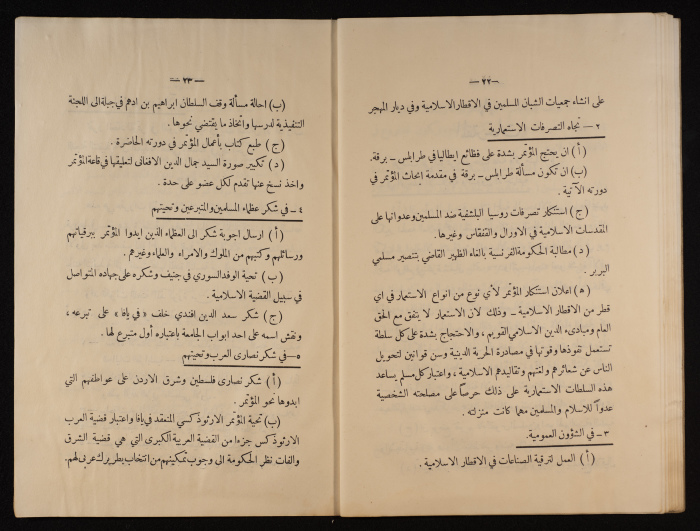 — ٢٢ —
على انشاء جمعيات الشبان المسلمين في الاقطار الاسلامية وفي ديار المهجر
٢ — تجاه التصرفات الاستعمارية
(أ) ان يحتج المؤتمر بشدة على فظائع ايطاليا في طرابلس – برقة.
(ب) ان تكون مسألة طرابلس – برقة في مقدمة ابحاث المؤتمر في
دورته الآتية .
(ج) استنكار تصرفات روسيا البلشفية ضد المسلمين وعدوانها على
المقدسات الاسلامية في الاورال والقفقاس وغيرها .
(د) مطالبة الحكومة الفرنسية بالغاء الظهير القاضي بتنصير مسلمي
البربر .
(ه) اعلان استنكار المؤتمر لأي نوع من انواع الاستعمار في اي
قطر من الاقطار الاسلامية – وذلك لان الاستعمار لا يتفق مع الحق
العام ومبادىء الدين الاسلامي القويم ، والاحتجاج بشدة على كل سلطة
تستعمل نفوذها وقوتها في مصادرة الحرية الدينية وسن قوانين لتحويل
الناس عن شعائرهم ولغتهم وتقاليدهم الاسلامية ، واعتبار كل مسلم يساعد
هذه السلطات الاستعمارية على ذلك حرصاً على مصلحته الشخصية
عدواً للاسلام والمسلمين مهما كانت منزلته .
٣ – في الشؤون العمومية.
(أ) العمل لترقية الصناعات في الاقطار الاسلامية .
— ٢٣ —
(ب) احالة مسألة وقف السلطان ابراهيم بن ادهم في جبلة الى اللجنة
التنفيذية لدرسها واتخاذ ما يقتضي نحوها .
(ج) طبع كتاب بأعمال المؤتمر في دورته الحاضرة .
(د) تكبير صورة السيد جمال الدين الافغاني لتعليقها في قاعة المؤتمر
واخذ نسخ عنها تقدم لكل عضو على حدة .
٤ – في شكر عظماء المسلمين والمتبرعين وتحيتهم
(أ) ارسال اجوبة شكر الى العظماء الذين ايدوا المؤتمر ببرقياتهم
ورسائلهم وكتبهم من الملوك والامراء والعلماء وغيرهم .
(ب) تحية الوفد السوري في جنيف وشكره على جهاده المتواصل
في سبيل القضية الاسلامية .
(ج) شكر سعد الدين افندي خلف « في يافا » على تبرعه ،
ونقش اسمه على احد ابواب الجامعة باعتباره أول متبرع لها .
٥ – في شكر نصارى العرب وتحيتهم
(أ) شكر نصارى فلسطين وشرق الاردن على عواطفهم التي
ابدوها نحو المؤتمر .
(ب) تحية المؤتمر الارثوذكسي المنعقد في يافا واعتبار قضية العرب
الارثوذكس جزءا من القضية العربية الكبرى التي هي قضية الشرق
والفات نظر الحكومة الى وجوب تمكينهم من انتخاب بطريرك عربي لهم.